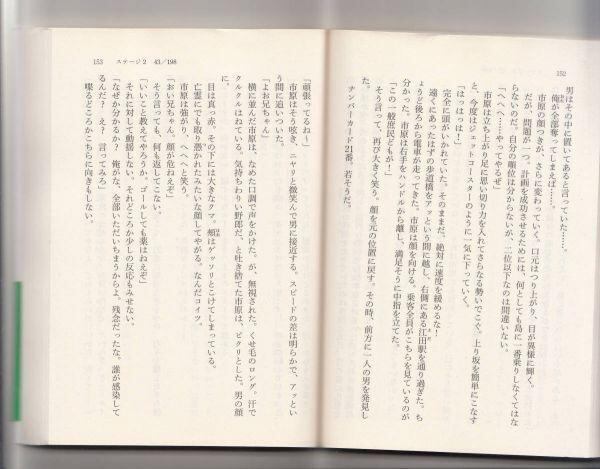 152
男はその中に置いてあると言っていた……。
俺が全部奪ってしまえば……。
市原の顔つきが、さらに変わっていく。口元はつり上がり、目が異様に輝く。
だが、問題が一つ。計画を成功させるためには、何としても島に一番乗りしなくてはな
らないのだ。自分の順位は分からないが、二位以下なのは間違いない。
「へへへ……やってやるぜ」
市原は立ち上がり足に思い切り力を入れてさらなる勢いでこぐ。上り坂を簡単にこなす
と、今度はジェットコースターのように一気に下っていく。
「はっはっは！」
完全に頭がいかれていた。そのままだ。絶対に速度を緩めるな！
遠くにあったはずの歩道橋をアッという間に越し、右側にある江田駅を通り過ぎた。ち
ょうど後ろから電車が走ってきた。市原は顔を向ける。乗客全員がこちらを見ているのが
分かった。市原は右手をハンドルから離し、満足そうに中指を立てた。
「この一般庶民どもが！」
そう言って、再び大きく笑う。顔を元の位置に戻す。その時、前方に一人の男を発見し
た。
ナンバーカード21番。若そうだ。
153 ステージ2 43/198
「頑張ってるねー」
市原はそう呟き、ニヤリと微笑んで男に接近する。スピードの差は明らかで、アッとい
う間に追いついた。
「よお兄ちゃん」
横に並んだ市原は、なめた口調で声をかけた。が、無視された。くせ毛のロング。汗で
クルクルはねている。気持ちわりい野郎だ、と吐き捨てた市原は、ビクリとした。男の顔
に。
目は真っ赤。その下には大きなクマ。頬はゲッソリとこけてしまっている。
亡霊にでも取り憑かれたみたいな顔してやがる。なんだコイツ。
市原は強がり、へへへと笑う。
「おい兄ちゃん、顔が危ねえぞ」
そう言っても、何も返してこない。
「いいこと教えてやろうか。ゴールしても薬はねえぞ」
それに対して動揺しない。それどころか少しの反応もみせない。
「なぜか分かるか？ 俺がな、全部いただいちまうからよ。残念だったな。誰が感染して
るんだ？ え？ 言ってみろ」
喋るどころかこちらに向きもしない。